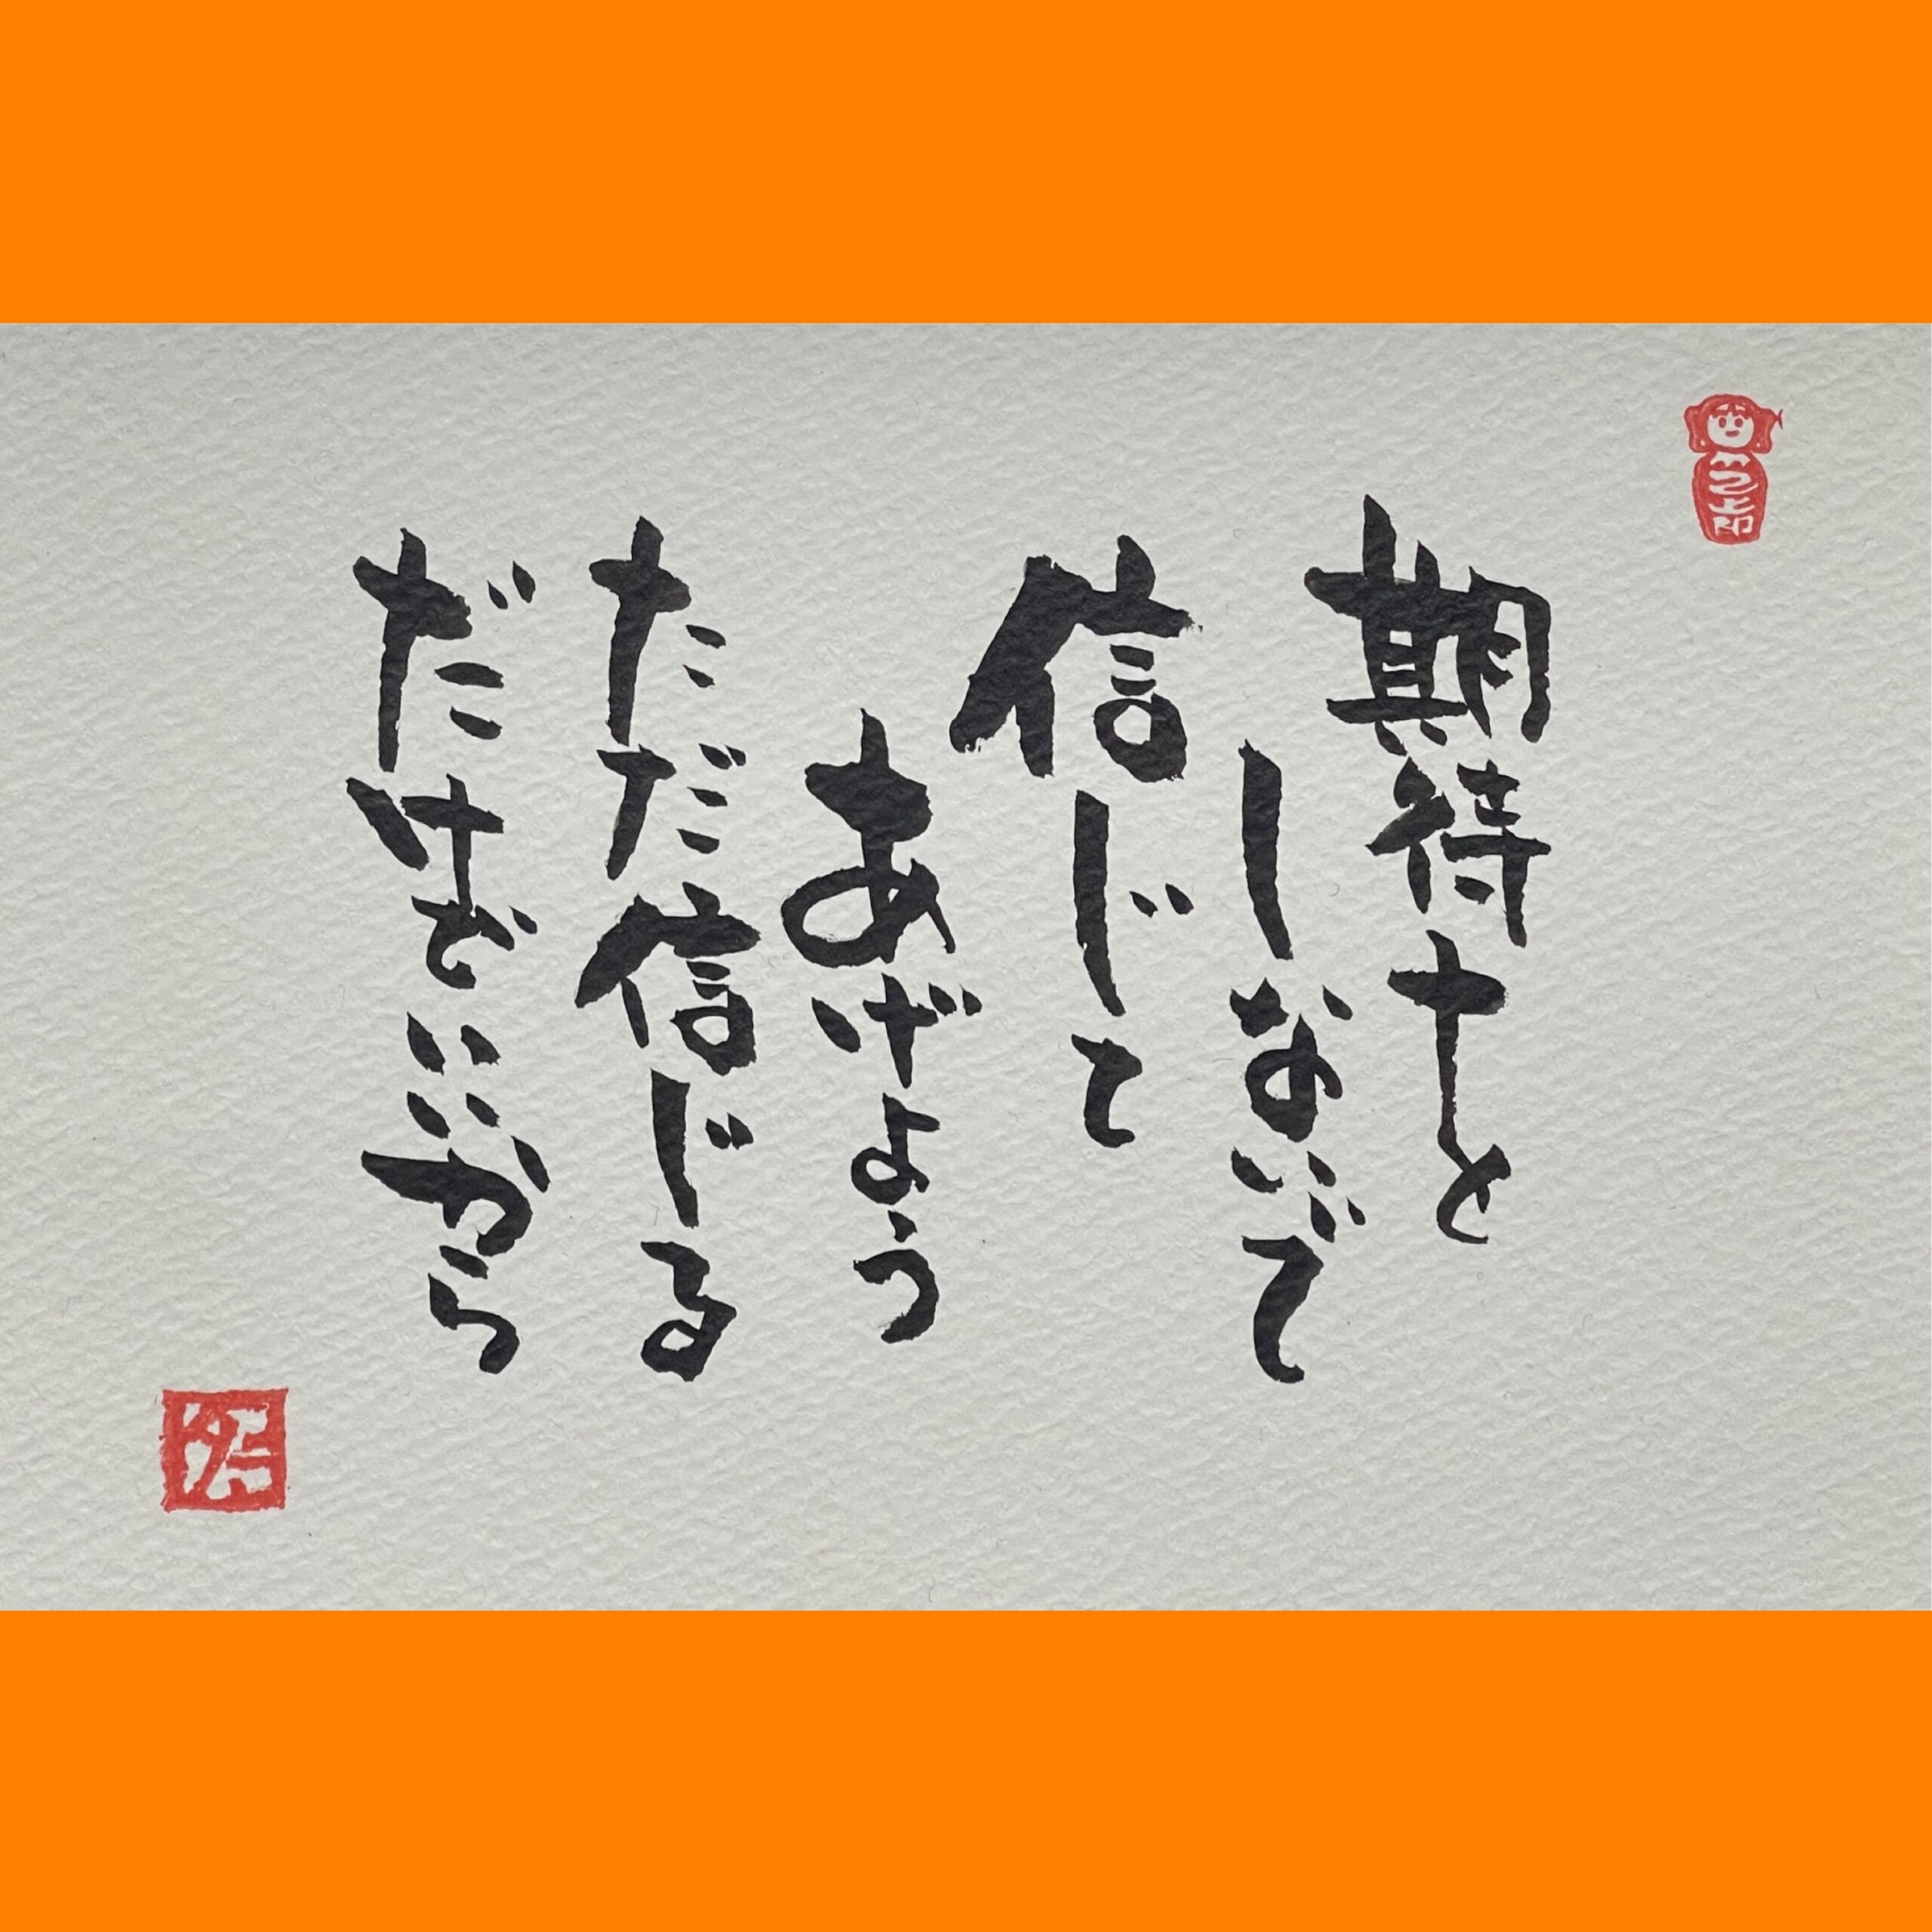 期待
しないで
信じて
あげよう
ただ信じる
だけでいいから